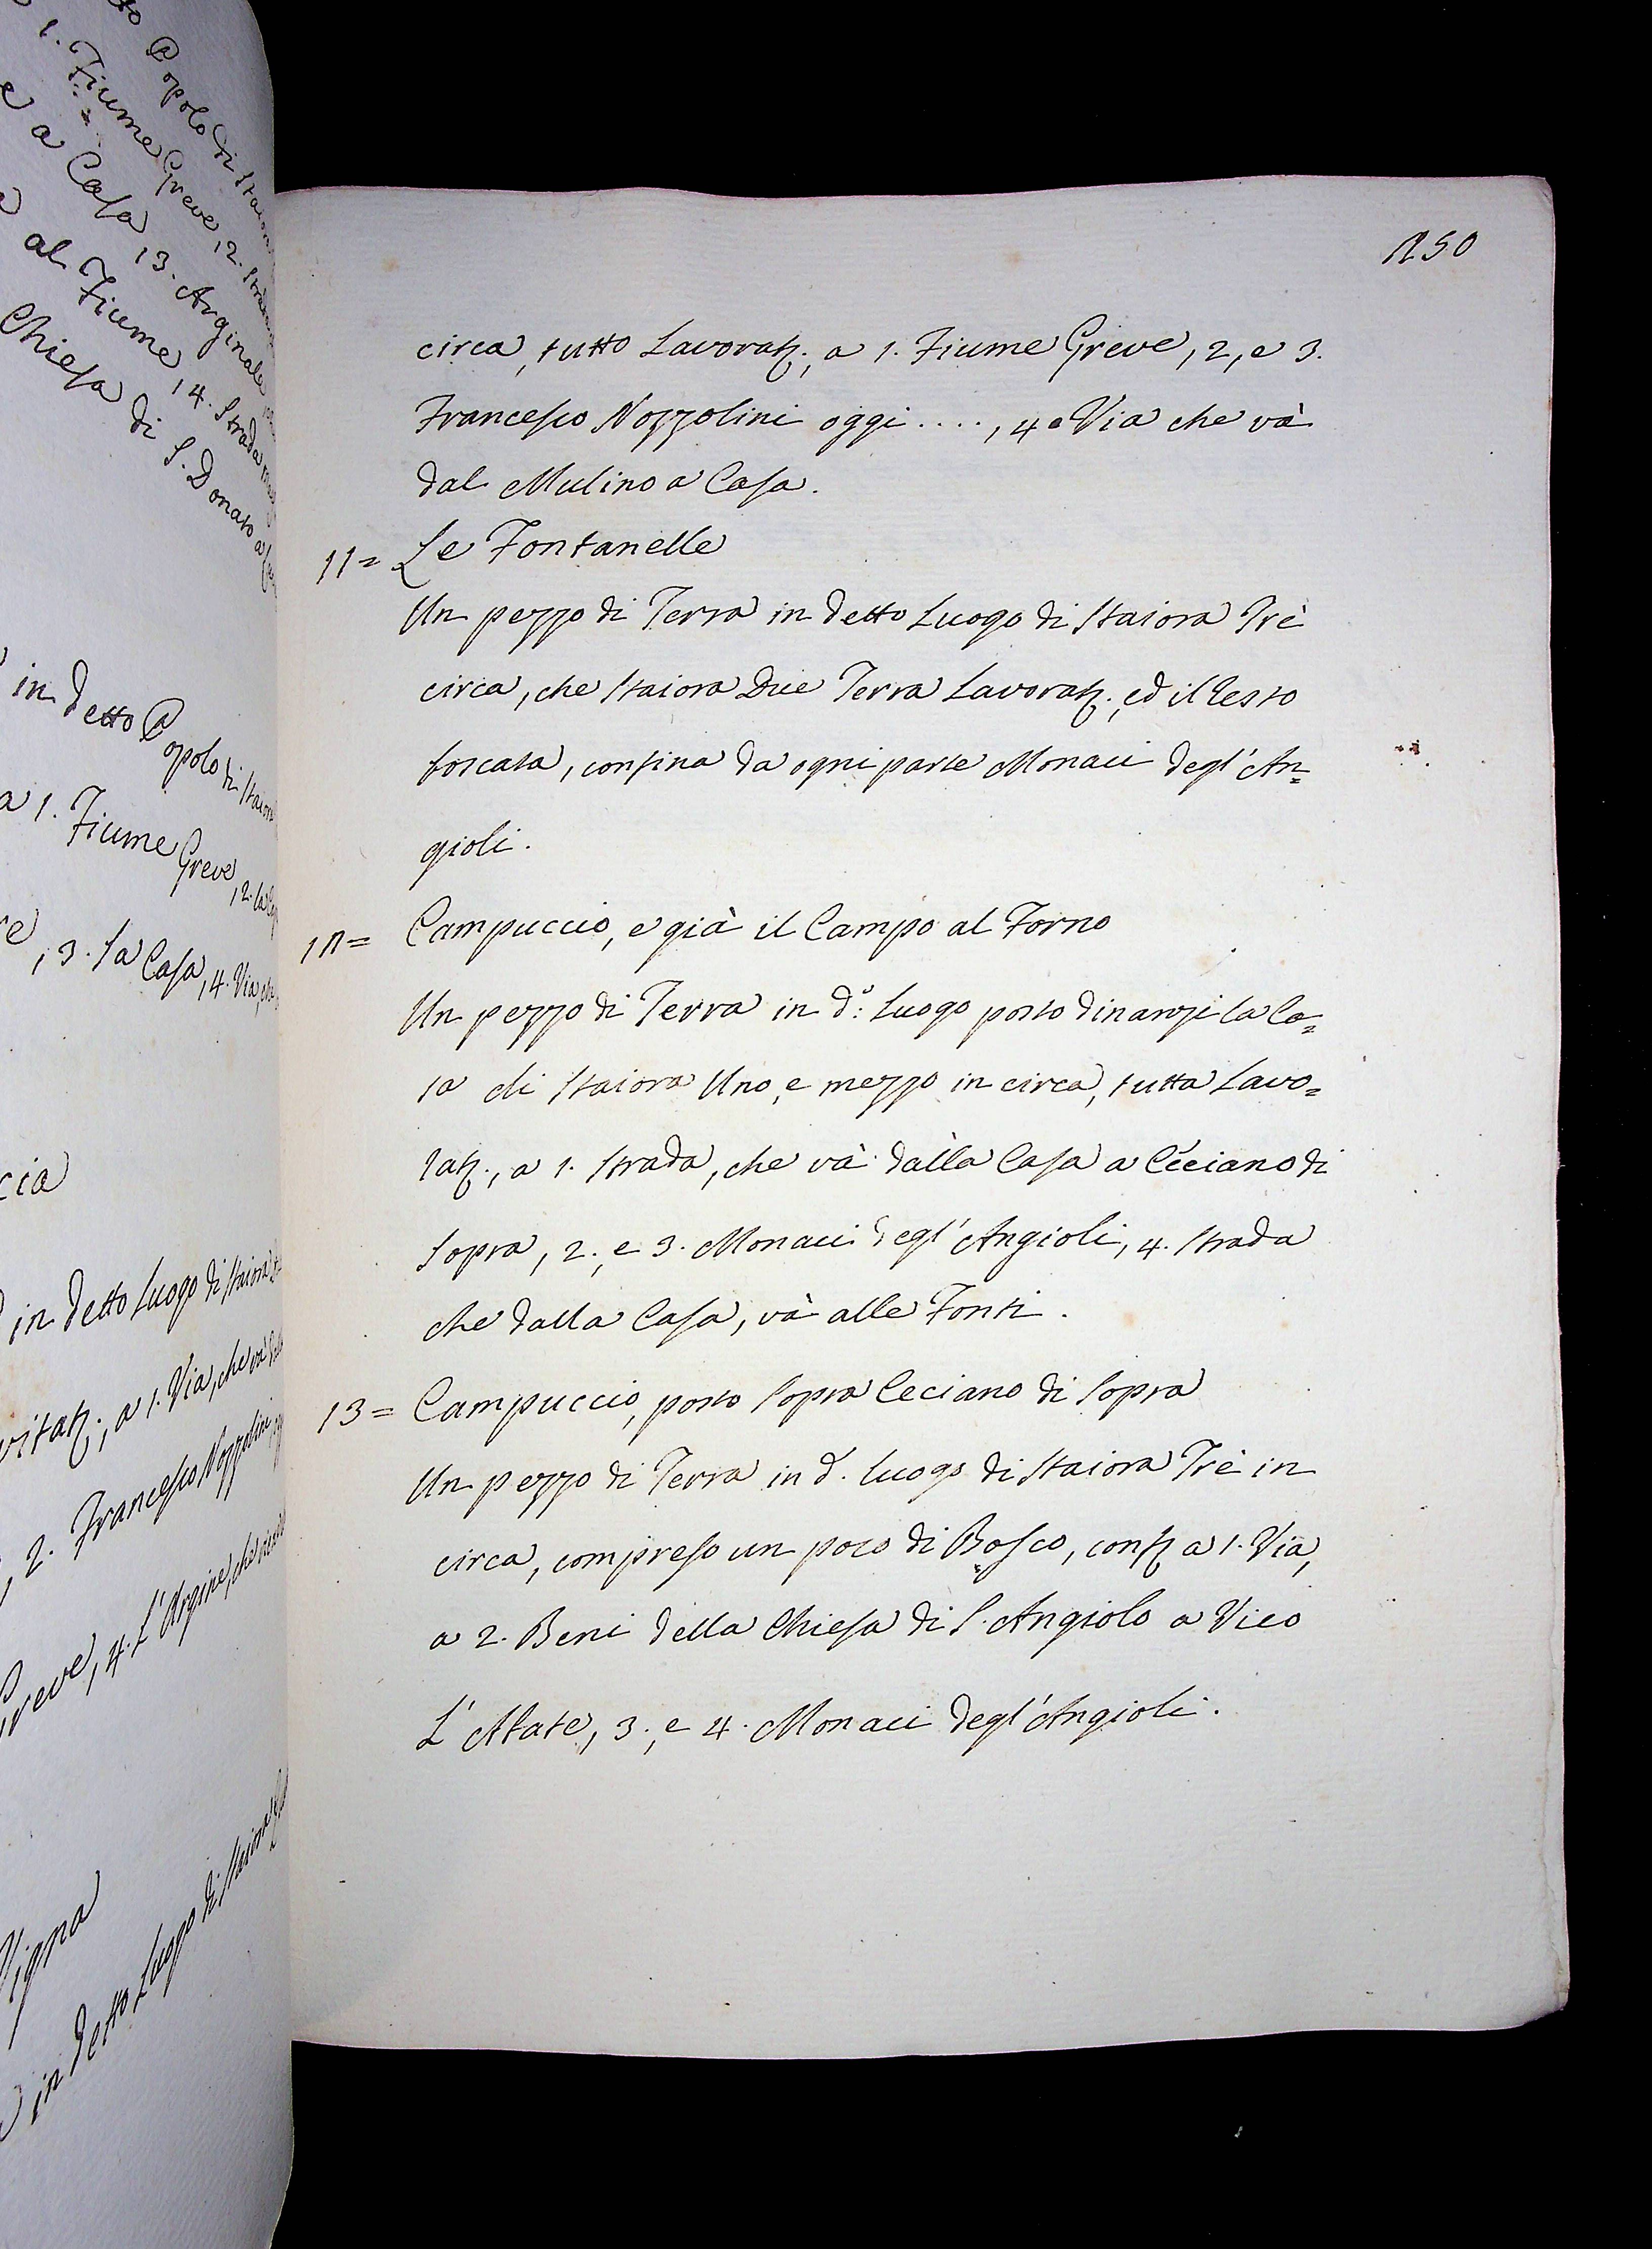 to Popolo di Staiora
1. Fiume Greve, 2. Strada
e a Casa, 3. Arginale
al Fiume, 4. Strada
Chiesa di S. Donato a
in detto Popolo di Staiora
a 1. Fiume Greve, 2. la
re, 3. la Casa, 4. Via, che
cia
in detto Luogo di Staiora
vitat., a 1. Via, che và
, 2. Francesco Nozzolini
Greve, 4. L'Argine, che
Vigna
in detto Luogo di Staiora
250
circa, tutto Lavorat., a 1. Fiume Greve, 2, e 3.
Francesco Nozzolini oggi ...., 4 e Via che và
dal Mulino a Casa.
11= Le Fontanelle
Un pezzo di Terra in detto Luogo di Staiora Trè
circa, che Staiora Due Terra Lavorat., ed il resto
boscata, confina da ogni parte Monaci degl'An=
gioli.
12= Campuccio, e già il Campo al Forno
Un pezzo di Terra in d.º Luogo posto dinanzi la Ca=
sa di Staiora Uno, e mezzo in circa, tutta Lavo=
rat., a 1. Strada, che và dalla Casa a Ceciano di
Sopra, 2., e 3. Monaci degl'Angioli, 4. Strada
che dalla Casa, và alle Fonti.
13= Campuccio, posto Sopra Ceciano di Sopra
Un pezzo di Terra in d. luogo di Staiora Trè in
circa, compreso un poco di Bosco, conf. a 1. Via,
a 2. Beni della Chiesa di S. Angiolo a Vico
L'Abate, 3., e 4. Monaci degl'Angioli.